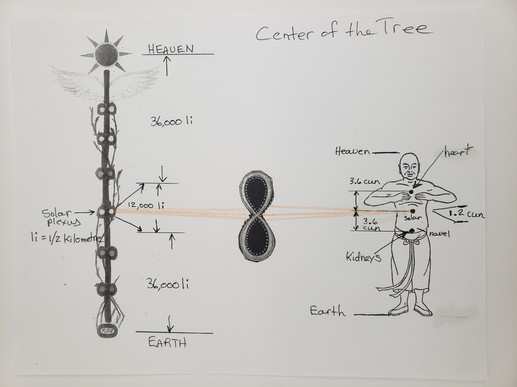 Center of the Tree
HEAVEN
36,000 li
12,000 li
Solar
plexus
li = 1/2 Kilometre
36,000 li
EARTH
Heaven
heart
3.6 cun
solar
1.2 cun
3.6
cun
navel
Kidneys
Earth